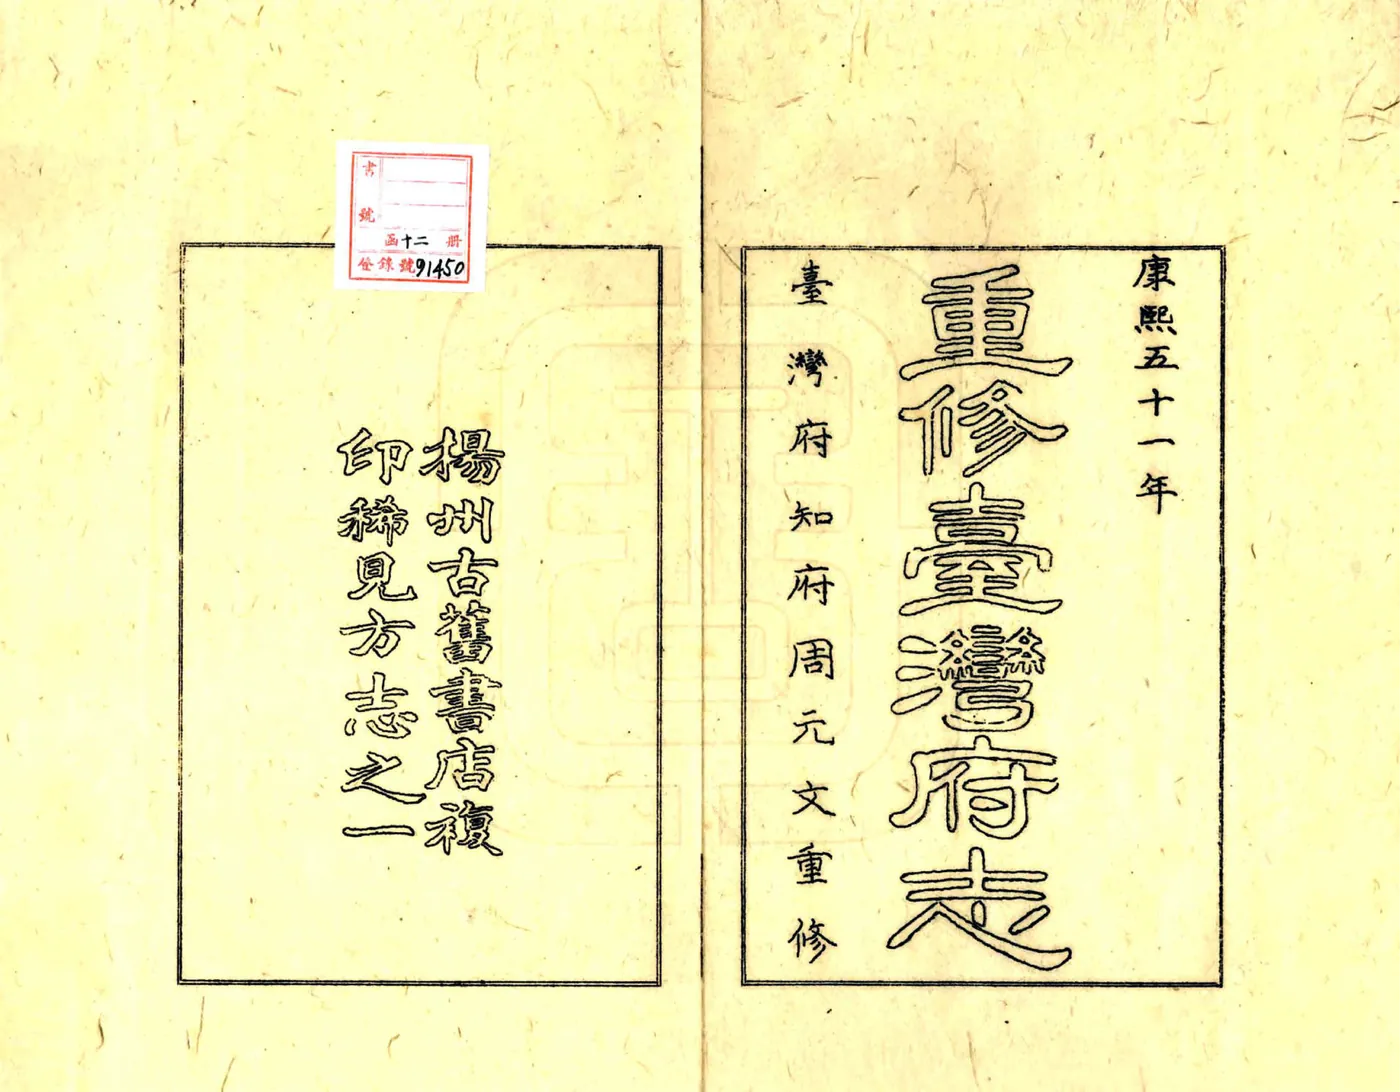 康熙五十一年
重修臺灣府志
臺灣府知府周元文重修
書號
函十二冊
登錄號91450
揚州古舊書店複
印稀見方志之一